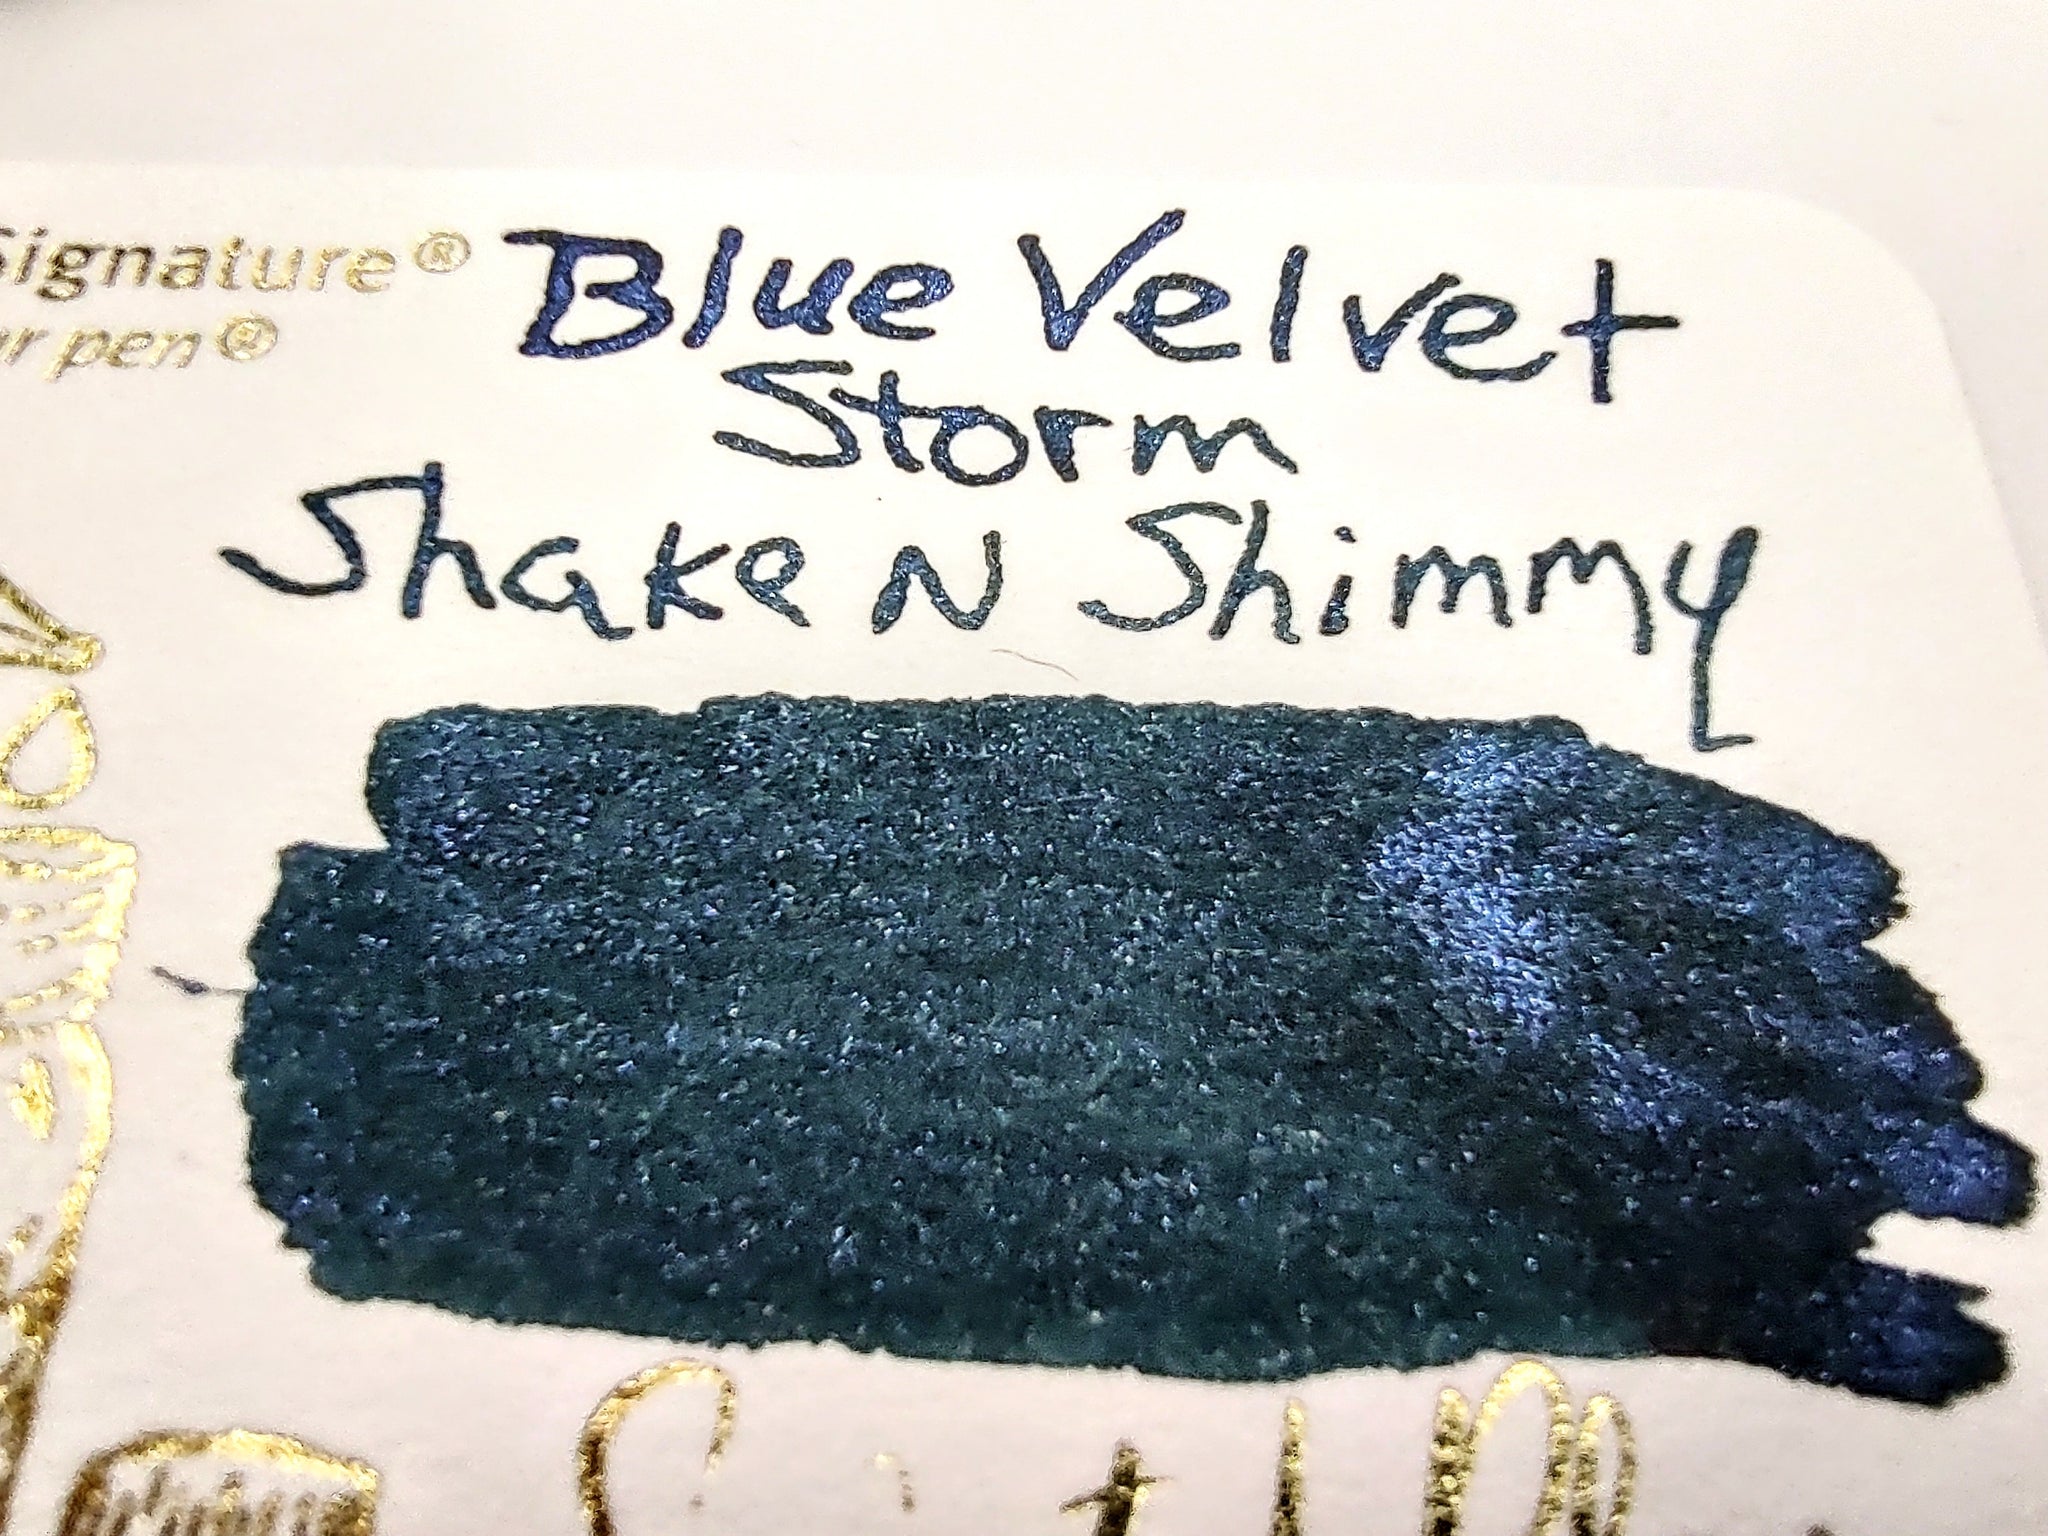 Signature®
pen®
Blue Velvet
Storm
Shake N Shimmy